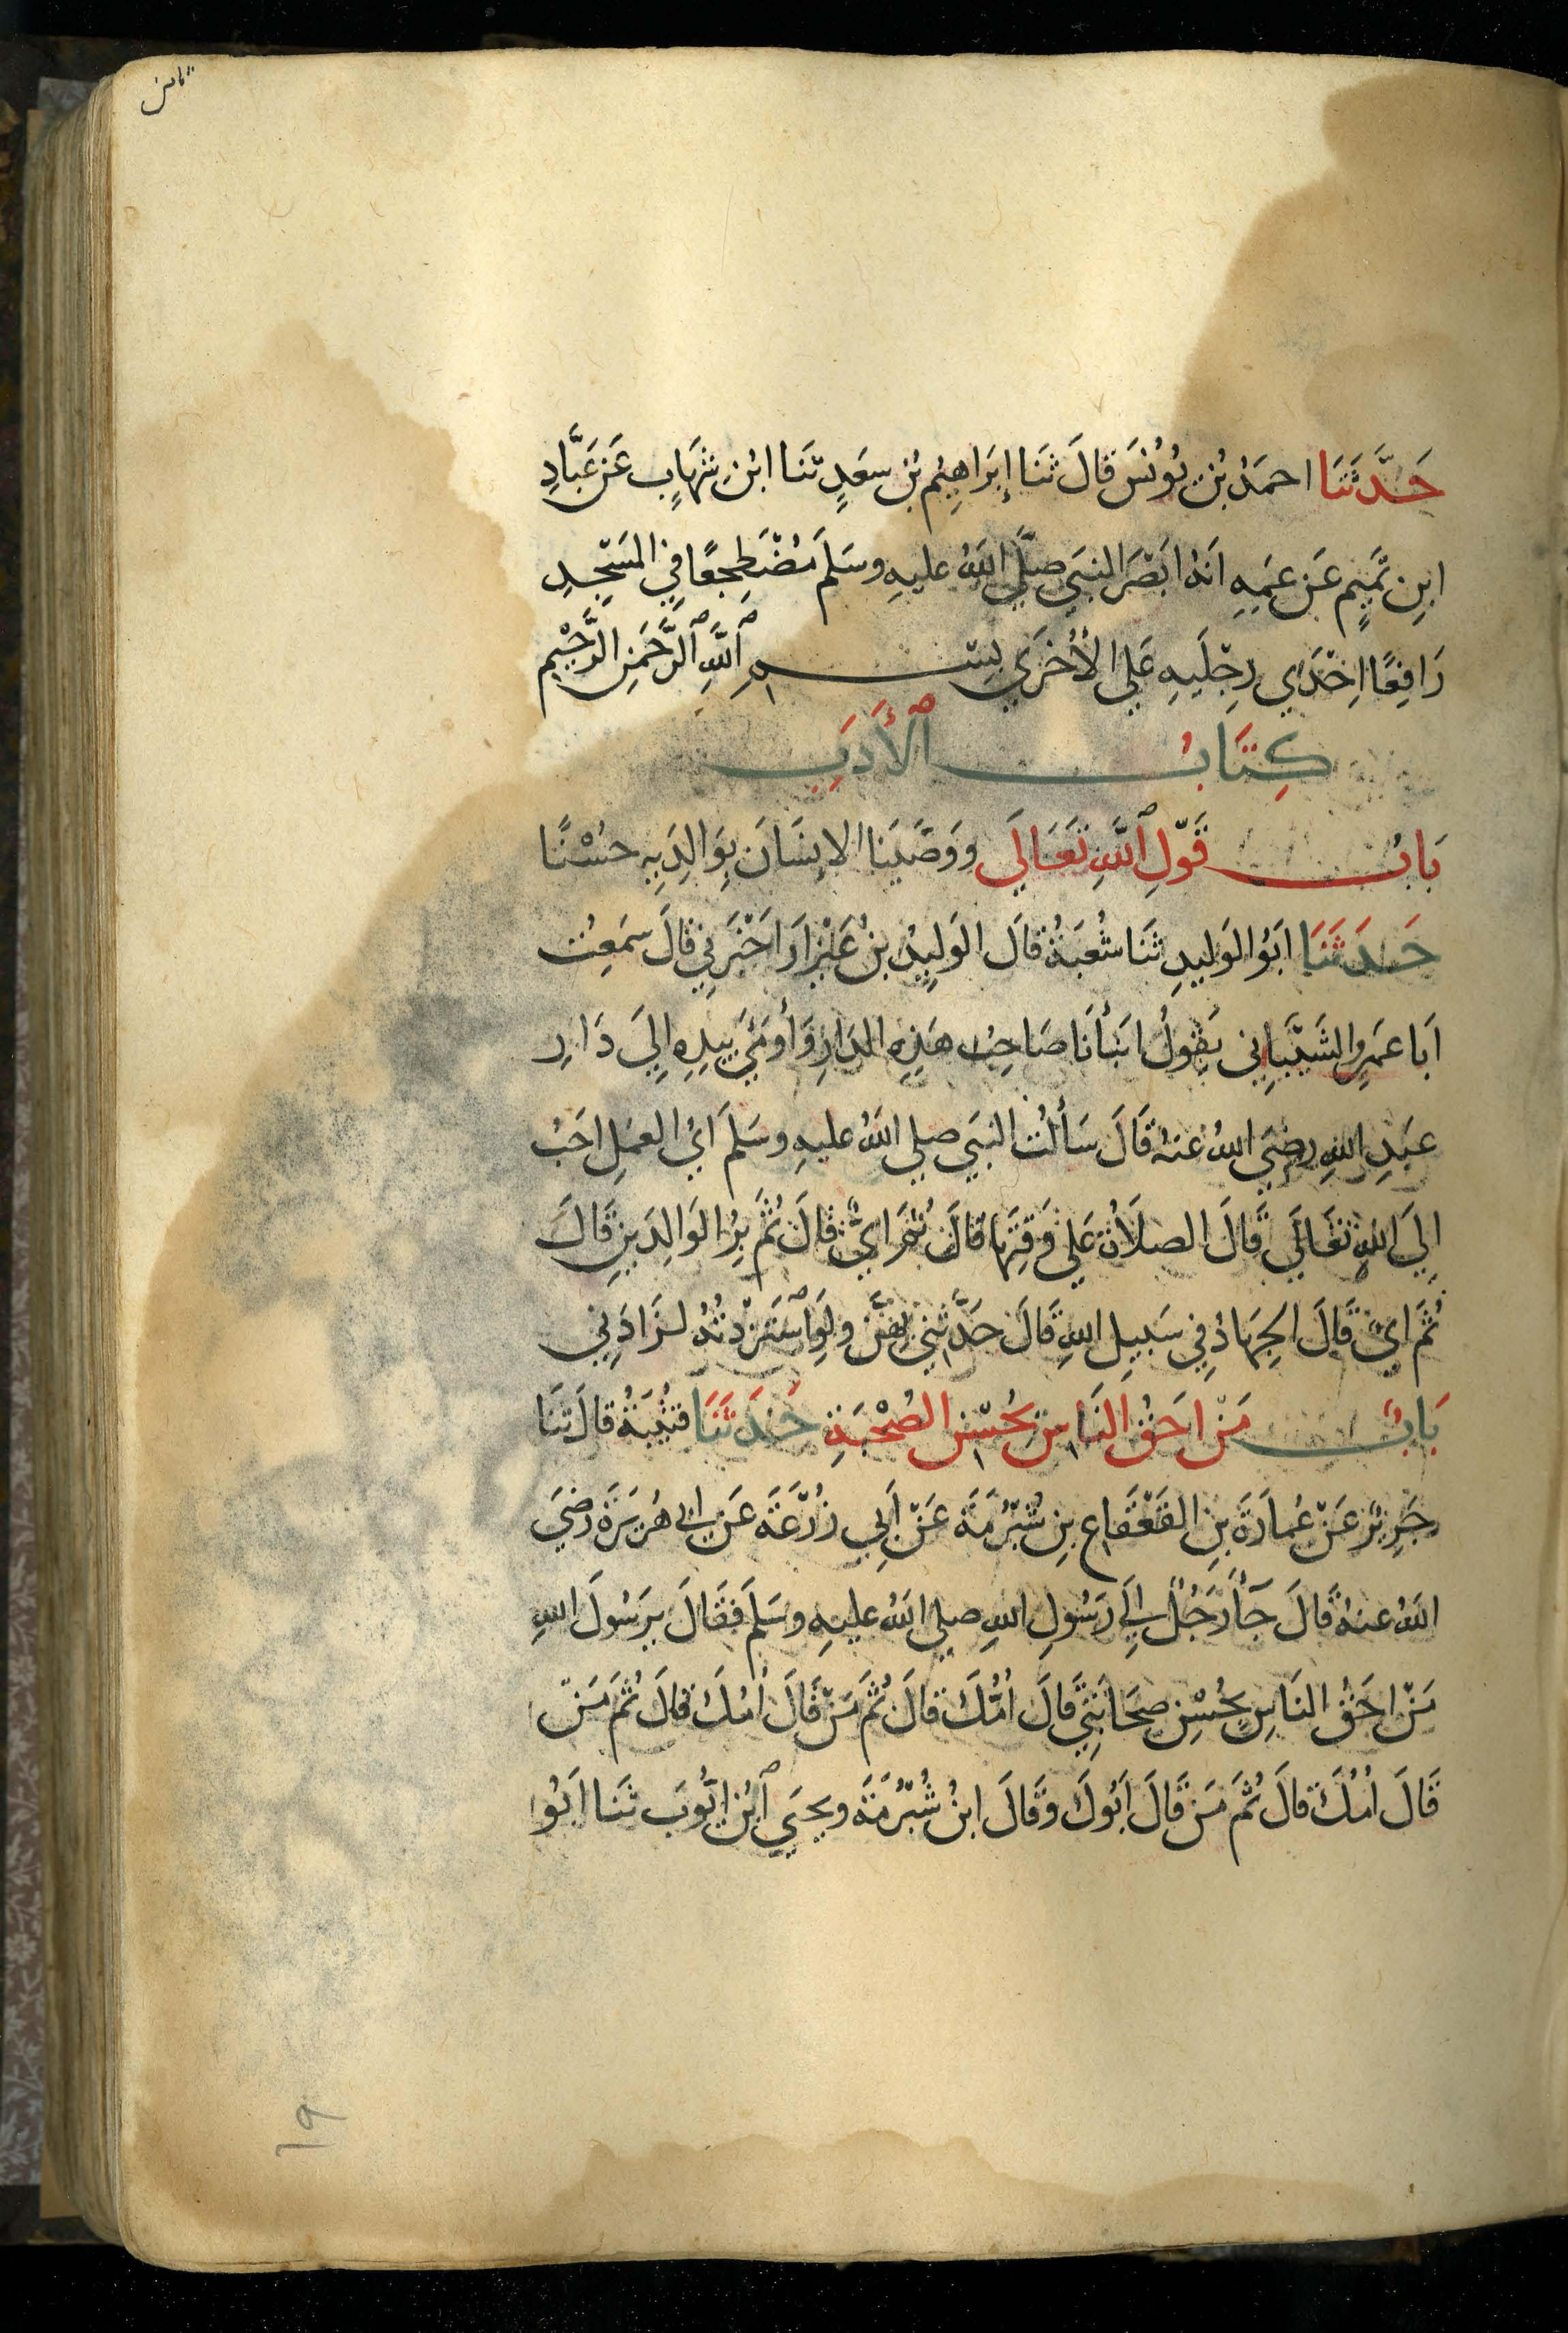 ثامن
حَدَّثَنَا احمَدُ بْنُ يُونُسَ قَالَ ثَنَا إِبْرَاهِيْم بْنُ سعَدٍ ثَنا ابْنِ شِهَابٍ عَن عَبَّادِ
ابنِ تَمِيمٍ عَن عَمِهِ اَنهُ ابَصَرَ النبيَ صلَّي اللهُ عليهِ وسَلمَ مُضْطَجِعًا فِي المَسْجِدِ
رَافِعًا اِحْدَي رِجْلَيهِ عَلي الأُخْرَي بِسْمِ ٱللَّهِ ٱلرَّحْمَنِ الرَّحِيْمِ
كِتَابُ ٱلأَدَبِ
بَابُ قَوْلِ ٱللَّهِ تَعَالَي وَوَصَّيَنَا الاِنسَانَ بِوَالِدَيهِ حُسْنًا
حَدَثَنَا ابَوُ الوَليدِ ثَنَا شُعبَةُ قَال الوَلِيدُ بنُ عَيْزَارَ اَخْبَرَنِي قَالَ سَمَعِتُ
اَبَا عَمرٍو الشَيْبَانِي يَقُولُ انَبْأنَا صَاحِبُ هَذِهِ الدَارِ وَأومَيَ بِيدِهِ اِلَي دَارِ
عبَدِ اللهِ رضِيَ اللهُ عنهُ قَالَ سَألتُ النبَي صلي اللهُ عليهِ وسَلمَ ايُ العمَلِ احَبُ
اِلَي اللهِ تعَالَي قَالَ الصلَاَةُ عَلي وَقتِهَا قَالَ ثُمَ ايٌّ قَالَ ثُمَّ بِرُ الوَالِدَينِ قَالَ
ثُمَ ايٌ قَالَ الجِهَادُ فِي سَبيلِ اللهِ قَالَ حَدَّثَنِي بِهنَّ ولَوِ ٱسْتَزدْتُهُ لزَادَنِي
بَابُ مَنْ احَقُ النَاسِ بحُسْنِ الصُحْبَةِ حَدَثَنَا قتُيْبَةُ قالَ ثَنَا
جَرِيرٌ عَنْ عُمارَةَ بنِ القَعْقَاعِ بنِ شُبْرُمَةَ عَنْ اَبِي زُرْعَةَ عَن ابي هُريَرَةَ رَضيَ
اللهُ عنهُ قَالَ جَآءَ رَجُلٌ الَي رَسُولِ اللهِ صلي اللهُ عليهِ وسَلمَ فَقَالَ يرَسُولَ اللهِ
مَنْ احَقُ النَاسِ بحُسْنِ صحَابَتِي قَالَ اُمُّكَ قالَ ثُمَ مَنْ قَالَ اُمُكَ قالَ ثُمَ مَنْ
قَالَ اُمُكَ قَالَ ثُمَ مَنْ قَالَ اَبُوكَ وَقَالَ ابنُ شُبْرُمَةَ ويحيَي ٱبْنُ ايَّوبَ ثَنَا ابَوُا
١٩